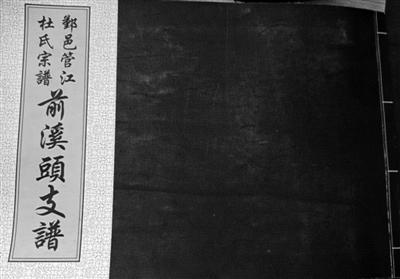 鄞邑管江
杜氏宗譜
前溪頭支譜